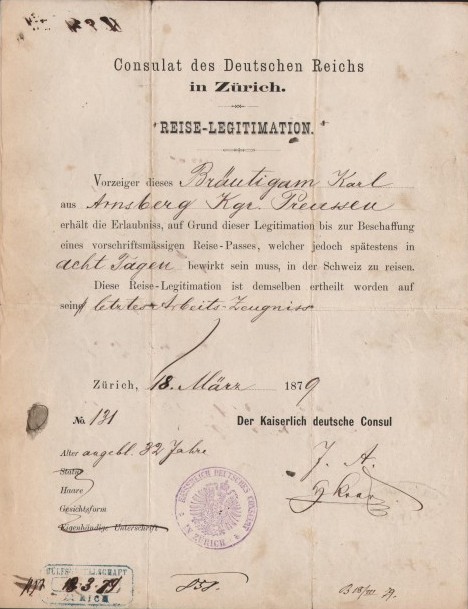 Consulat des Deutschen Reichs
in Zürich.
REISE-LEGITIMATION.
Vorzeiger dieses Bräutigam Karl
aus Arnsberg Kgr. Preussen
erhält die Erlaubniss, auf Grund dieser Legitimation bis zur Beschaffung
eines vorschriftsmässigen Reise-Passes, welcher jedoch spätestens in
acht Tagen bewirkt sein muss, in der Schweiz zu reisen.
Diese Reise-Legitimation ist demselben ertheilt worden auf
sein letztes Arbeits-Zeugniss
Zürich, 18. März 1879
No. 131
Der Kaiserlich deutsche Consul
Alter angebl. 32 Jahre
J. A.
Statur
Haare
Gesichtsform
Eigenhändige Unterschrift
KAISERLICH DEUTSCHES CONSULAT
IN ZÜRICH
HÜLFSGESELLSCHAFT
18.3.79
ZÜRICH